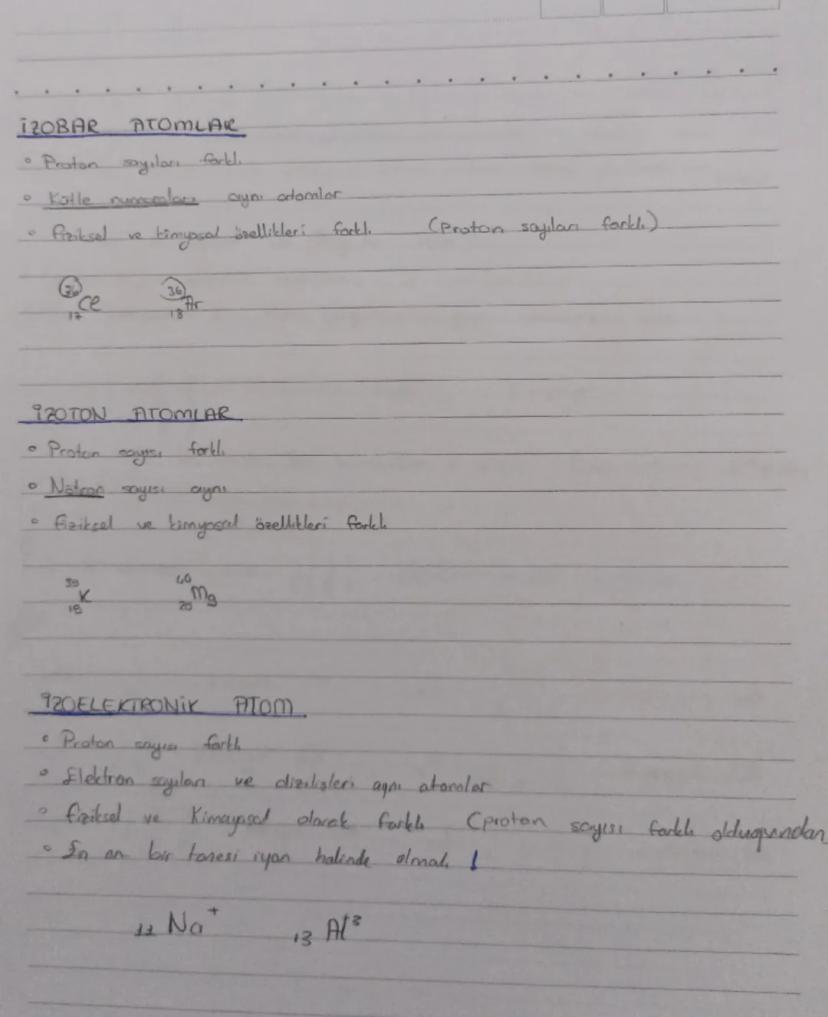 İZOBAR ATOMLAR
° Proton sayıları farklı
° Kütle numaraları aynı atomlar
° fiziksel ve kimyasal özellikleri farklı (Proton sayıları farklı)
36 Cl 17 36 Ar 18
İZOTON ATOMLAR
° Proton sayısı farklı
° Nötron sayısı aynı
° fiziksel ve kimyasal özellikleri farklı
39 K 18 40 Mg 20
İZOELEKTRONİK ATOM
° Proton sayısı farklı
° Elektron sayıları ve dizilişleri aynı atomlar
° fiziksel ve Kimaysal olarak farklı (proton sayısı farklı olduğundan
° En an bir tanesi iyon halinde olmalı !
11 Na+ 13 Al3